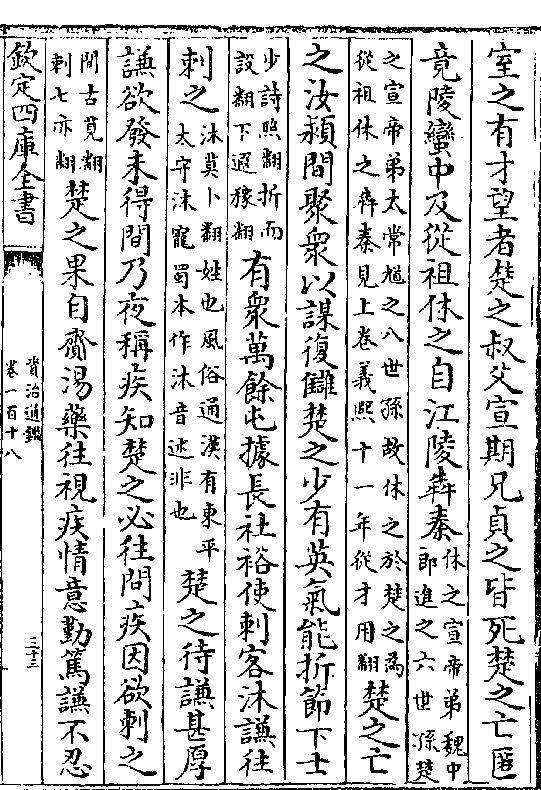 室之有才望者楚之叔父宣期兄貞之皆死楚之亡匿
竟陵蠻中及從祖休之自江陵犇秦休之宣帝弟魏中郎進之六世孫楚
之宣帝弟太常馗之八世孫故休之於楚之為從祖休之犇秦見上卷義熙十一年從才用翻楚之亡
之汝潁間聚衆以謀復讎楚之少有英氣能折節下士
少詩照翻折而設翻下遐稼翻有衆萬餘屯據長社裕使刺客沐謙往
刺之沐莫卜翻姓也風俗通漢有東平太守沐寵蜀本作沭音述非也楚之待謙甚厚
謙欲發未得間乃夜稱疾知楚之必往問疾因欲刺之
間古莧翻刺七亦翻楚之果自齎湯藥往視疾情意勤篤謙不忍
欽定四庫全書
資治通鑑
卷一百十八
三十三